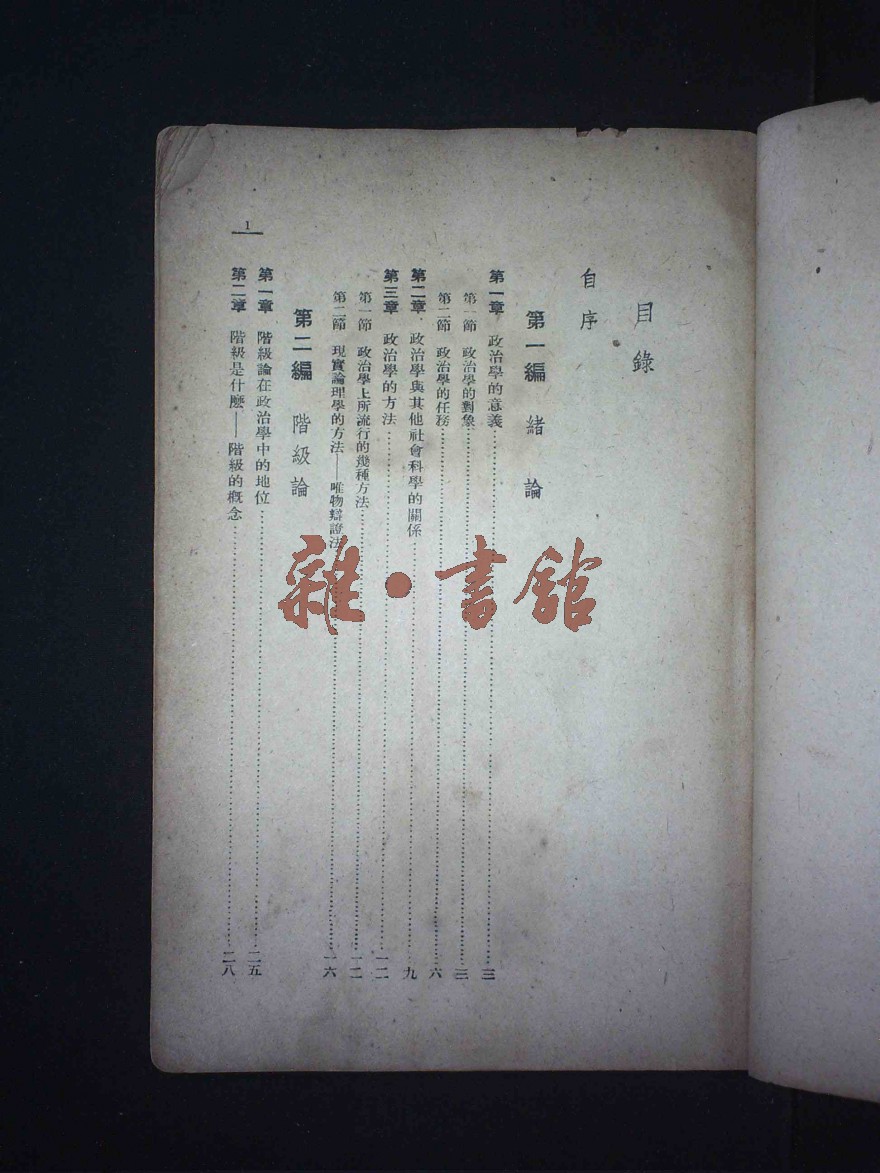 目錄
自序
第一編 緒論
第一章 政治學的意義……三
第一節 政治學的對象……三
第二節 政治學的任務……六
第二章 政治學與其他社會科學的關係……九
第三章 政治學的方法……一二
第一節 政治學上所流行的幾種方法……一二
第二節 現實論理學的方法——唯物辯證法……一六
第二編 階級論
第一章 階級論在政治學中的地位……二五
第二章 階級是什麽——階級的概念……二八
1
雜·書館